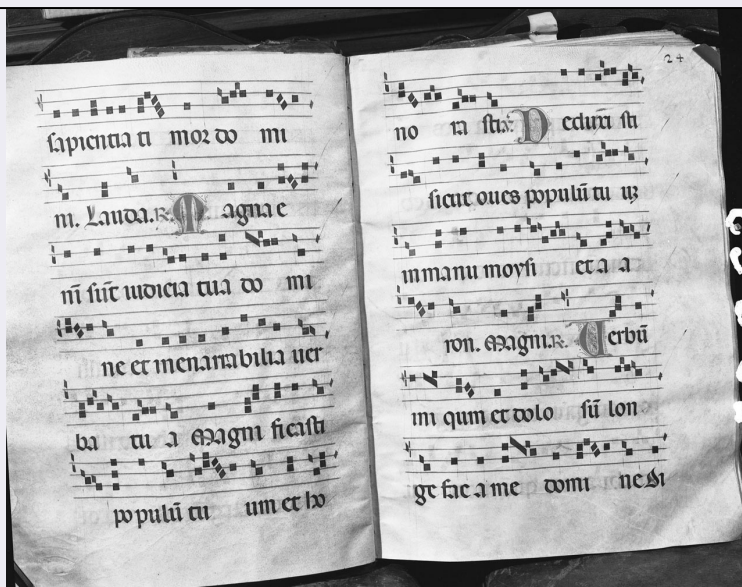 sapientia ti mor do mi
ni. Lauda. R. Magna e
nī sūt iudicia tua do mi
ne et inenarrabilia ver
ba tu a Magni ficasti
populū tu um et ho
24
no ra sti: Deduxi sti
sicut oues populū tu uʒ
in manu moysi et a a
ron. Magni. R. Verbū
ini qum et dolo sū lon
ge fac a me domi ne Di